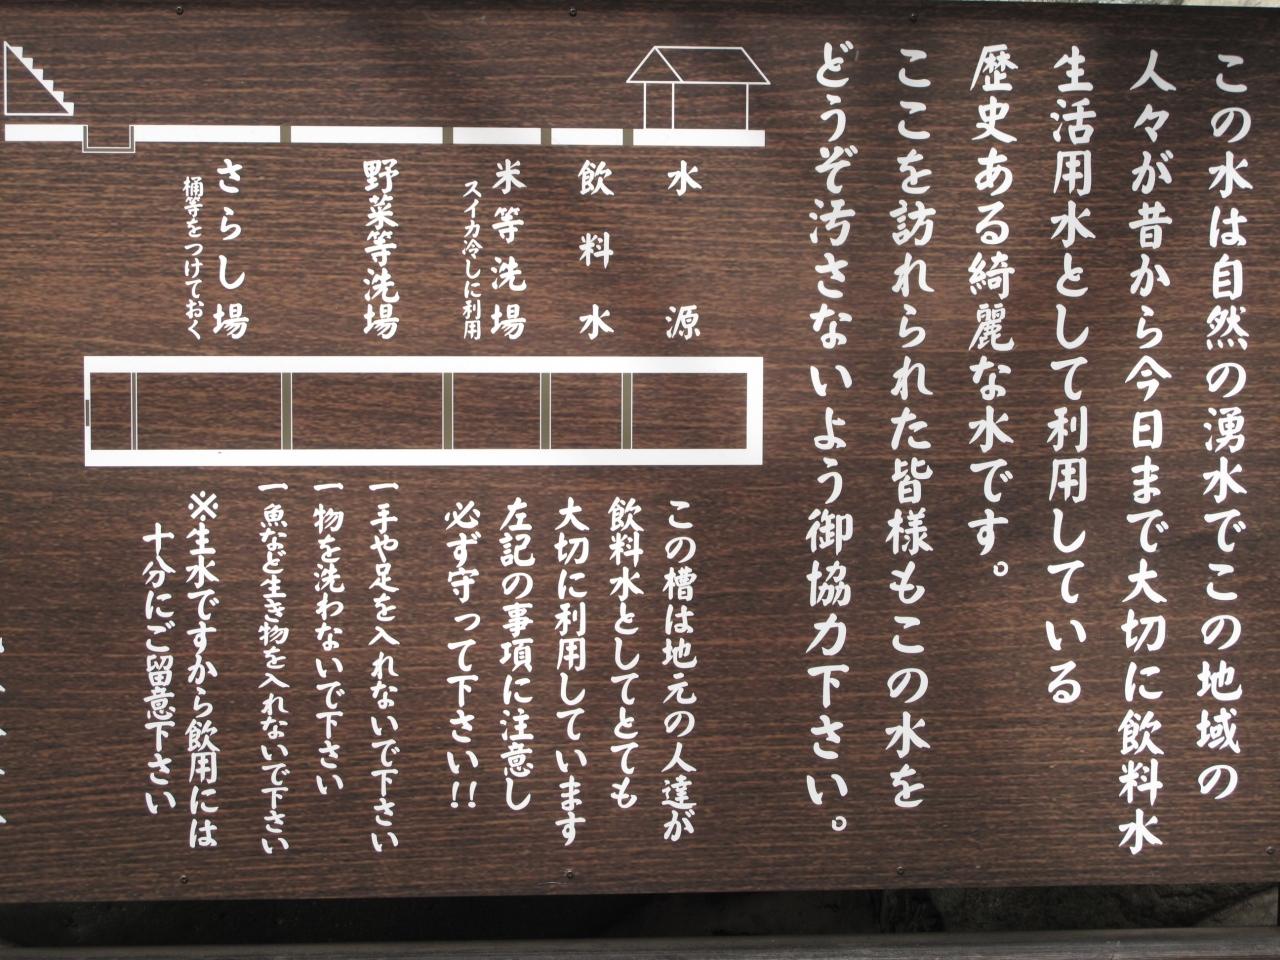 この水は自然の湧水でこの地域の
人々が昔から今日まで大切に飲料水
生活用水として利用している
歴史ある綺麗な水です。
ここを訪れられた皆様もこの水を
どうぞ汚さないよう御協力下さい。
水源
飲料水
米等洗場
スイカ冷しに利用
野菜等洗場
さらし場
桶等をつけておく
この槽は地元の人達が
飲料水としてとても
大切に利用しています
左記の事項に注意し
必ず守って下さい!!
一手や足を入れないで下さい
一物を洗わないで下さい
一魚など生き物を入れないで下さい
※生水ですから飲用には
十分にご留意下さい